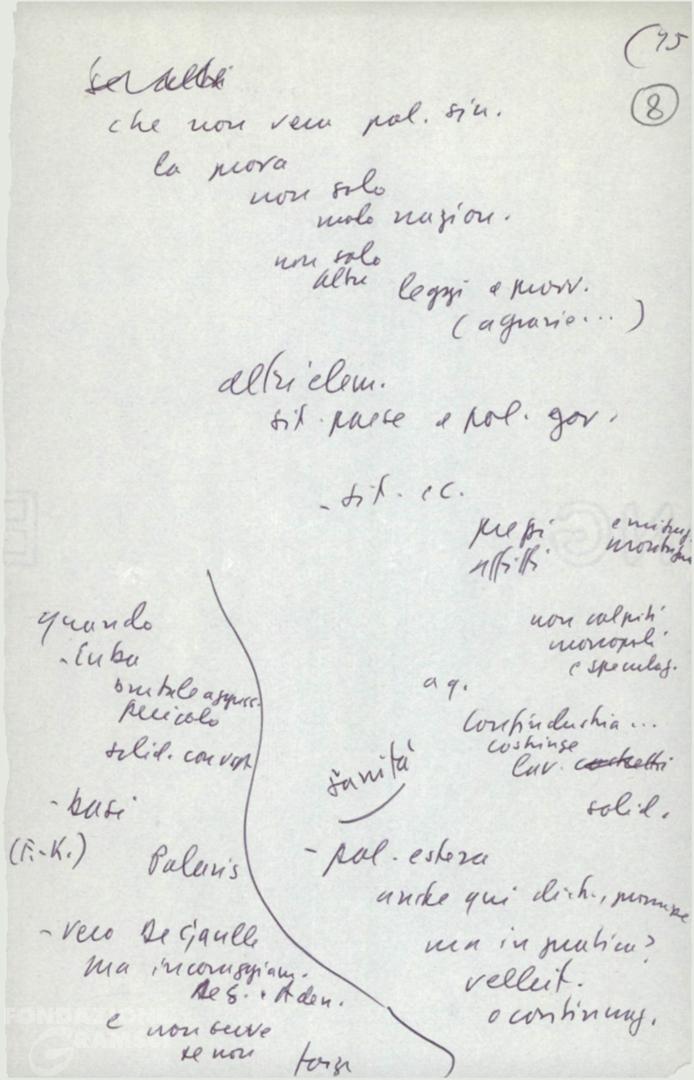 (45
8
che non vera pol. sin.
la prova
non solo
molo nazion.
non solo
altre leggi e provv.
(agrarie...)
altri elem.
sit. paese e pol. gov.
- sit. ec.
prezzi
affitti
non colpiti
monopoli
e speculaz.
ag.
Confindustria...
costringe
lav.
solid.
sanità
- pol. estera
anche qui dich., promesse
ma in pratica?
velleit.
o continuaz.
quando
- Cuba
brutale aggress.
pericolo
solid. con
- basi
(F.-K.)
Polaris
- vero De Gaulle
ma incoraggiam.
De G. + Aden.
e non serve
se non
forza
FONDAZIONE
GRAMSCI